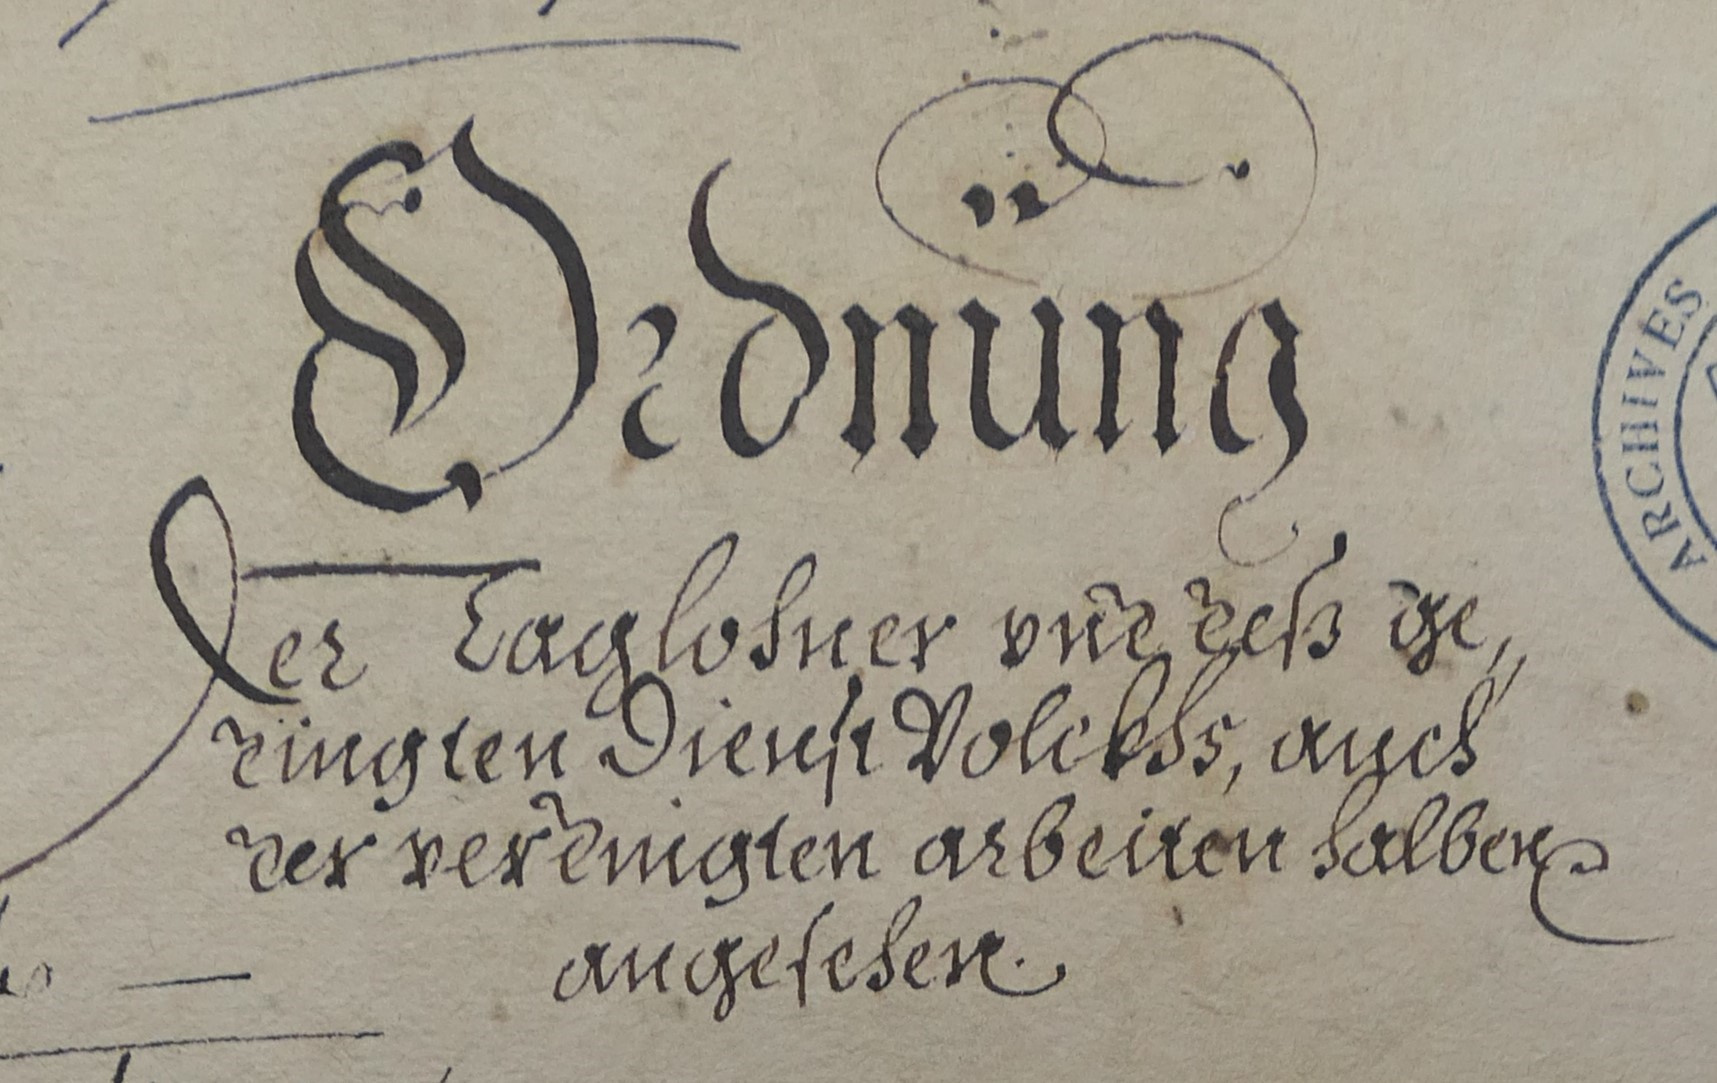 Ordnung
Der Taglohner vnd deß ge„
dingten Dienst Volckhs, auch
der verdingten arbeiten halben
angesehen.
ARCHIVES